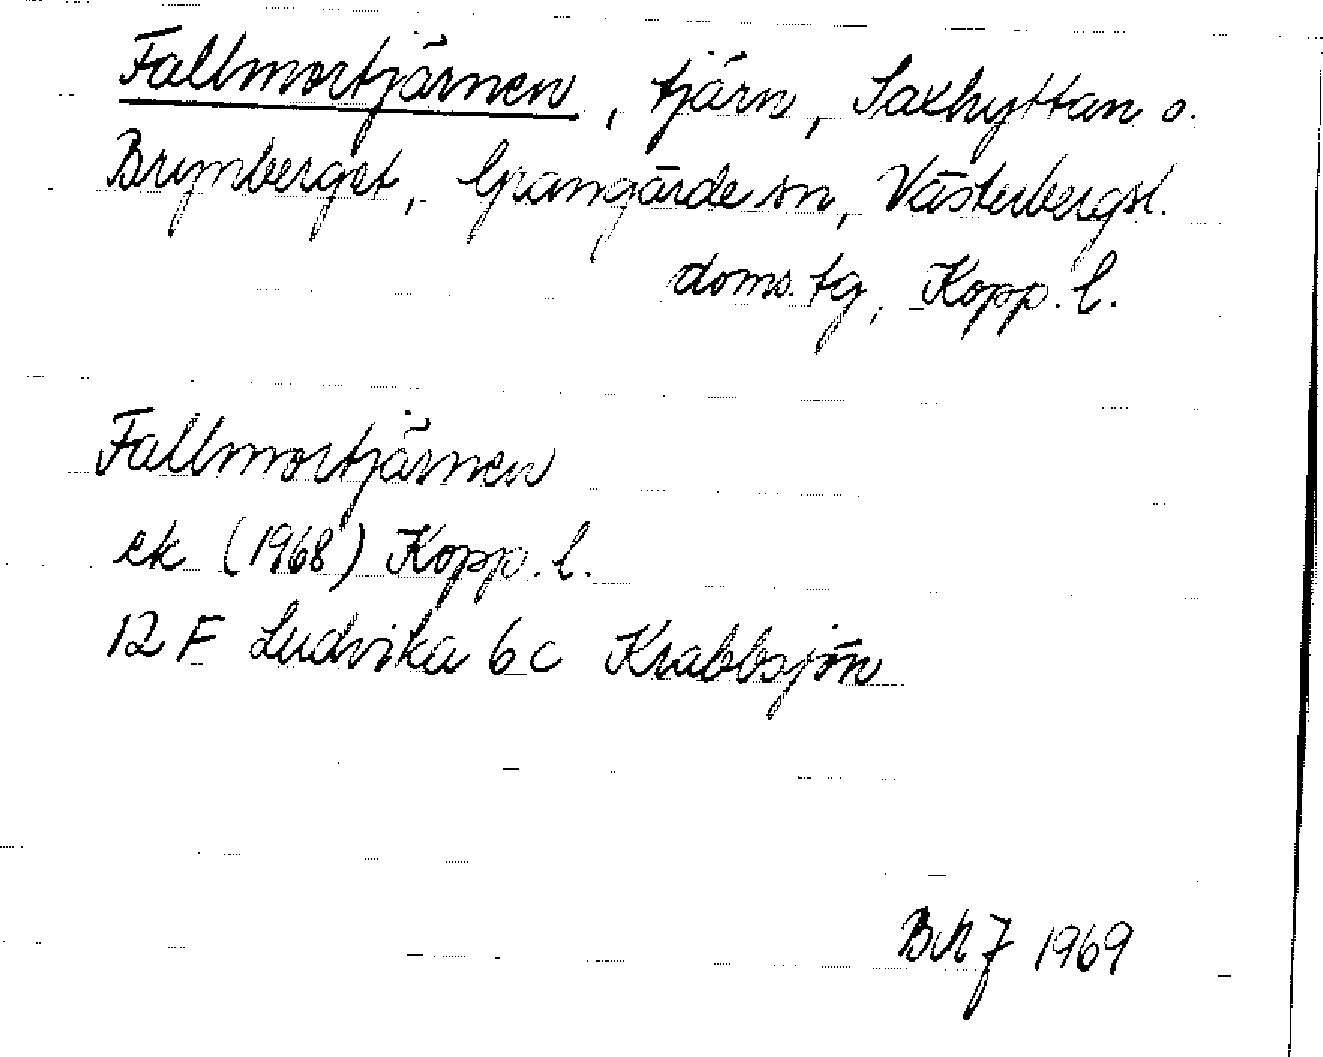 Fallmortjärnen, tjärn, Saxhyttan o.
Brynberget, Grangärde sn, Västerbergsl.
doms. tg, Kopp. l.
Fallmortjärnen
ek (1968) Kopp. l.
12 F Ludvika 6 c Krabbsjön
1969